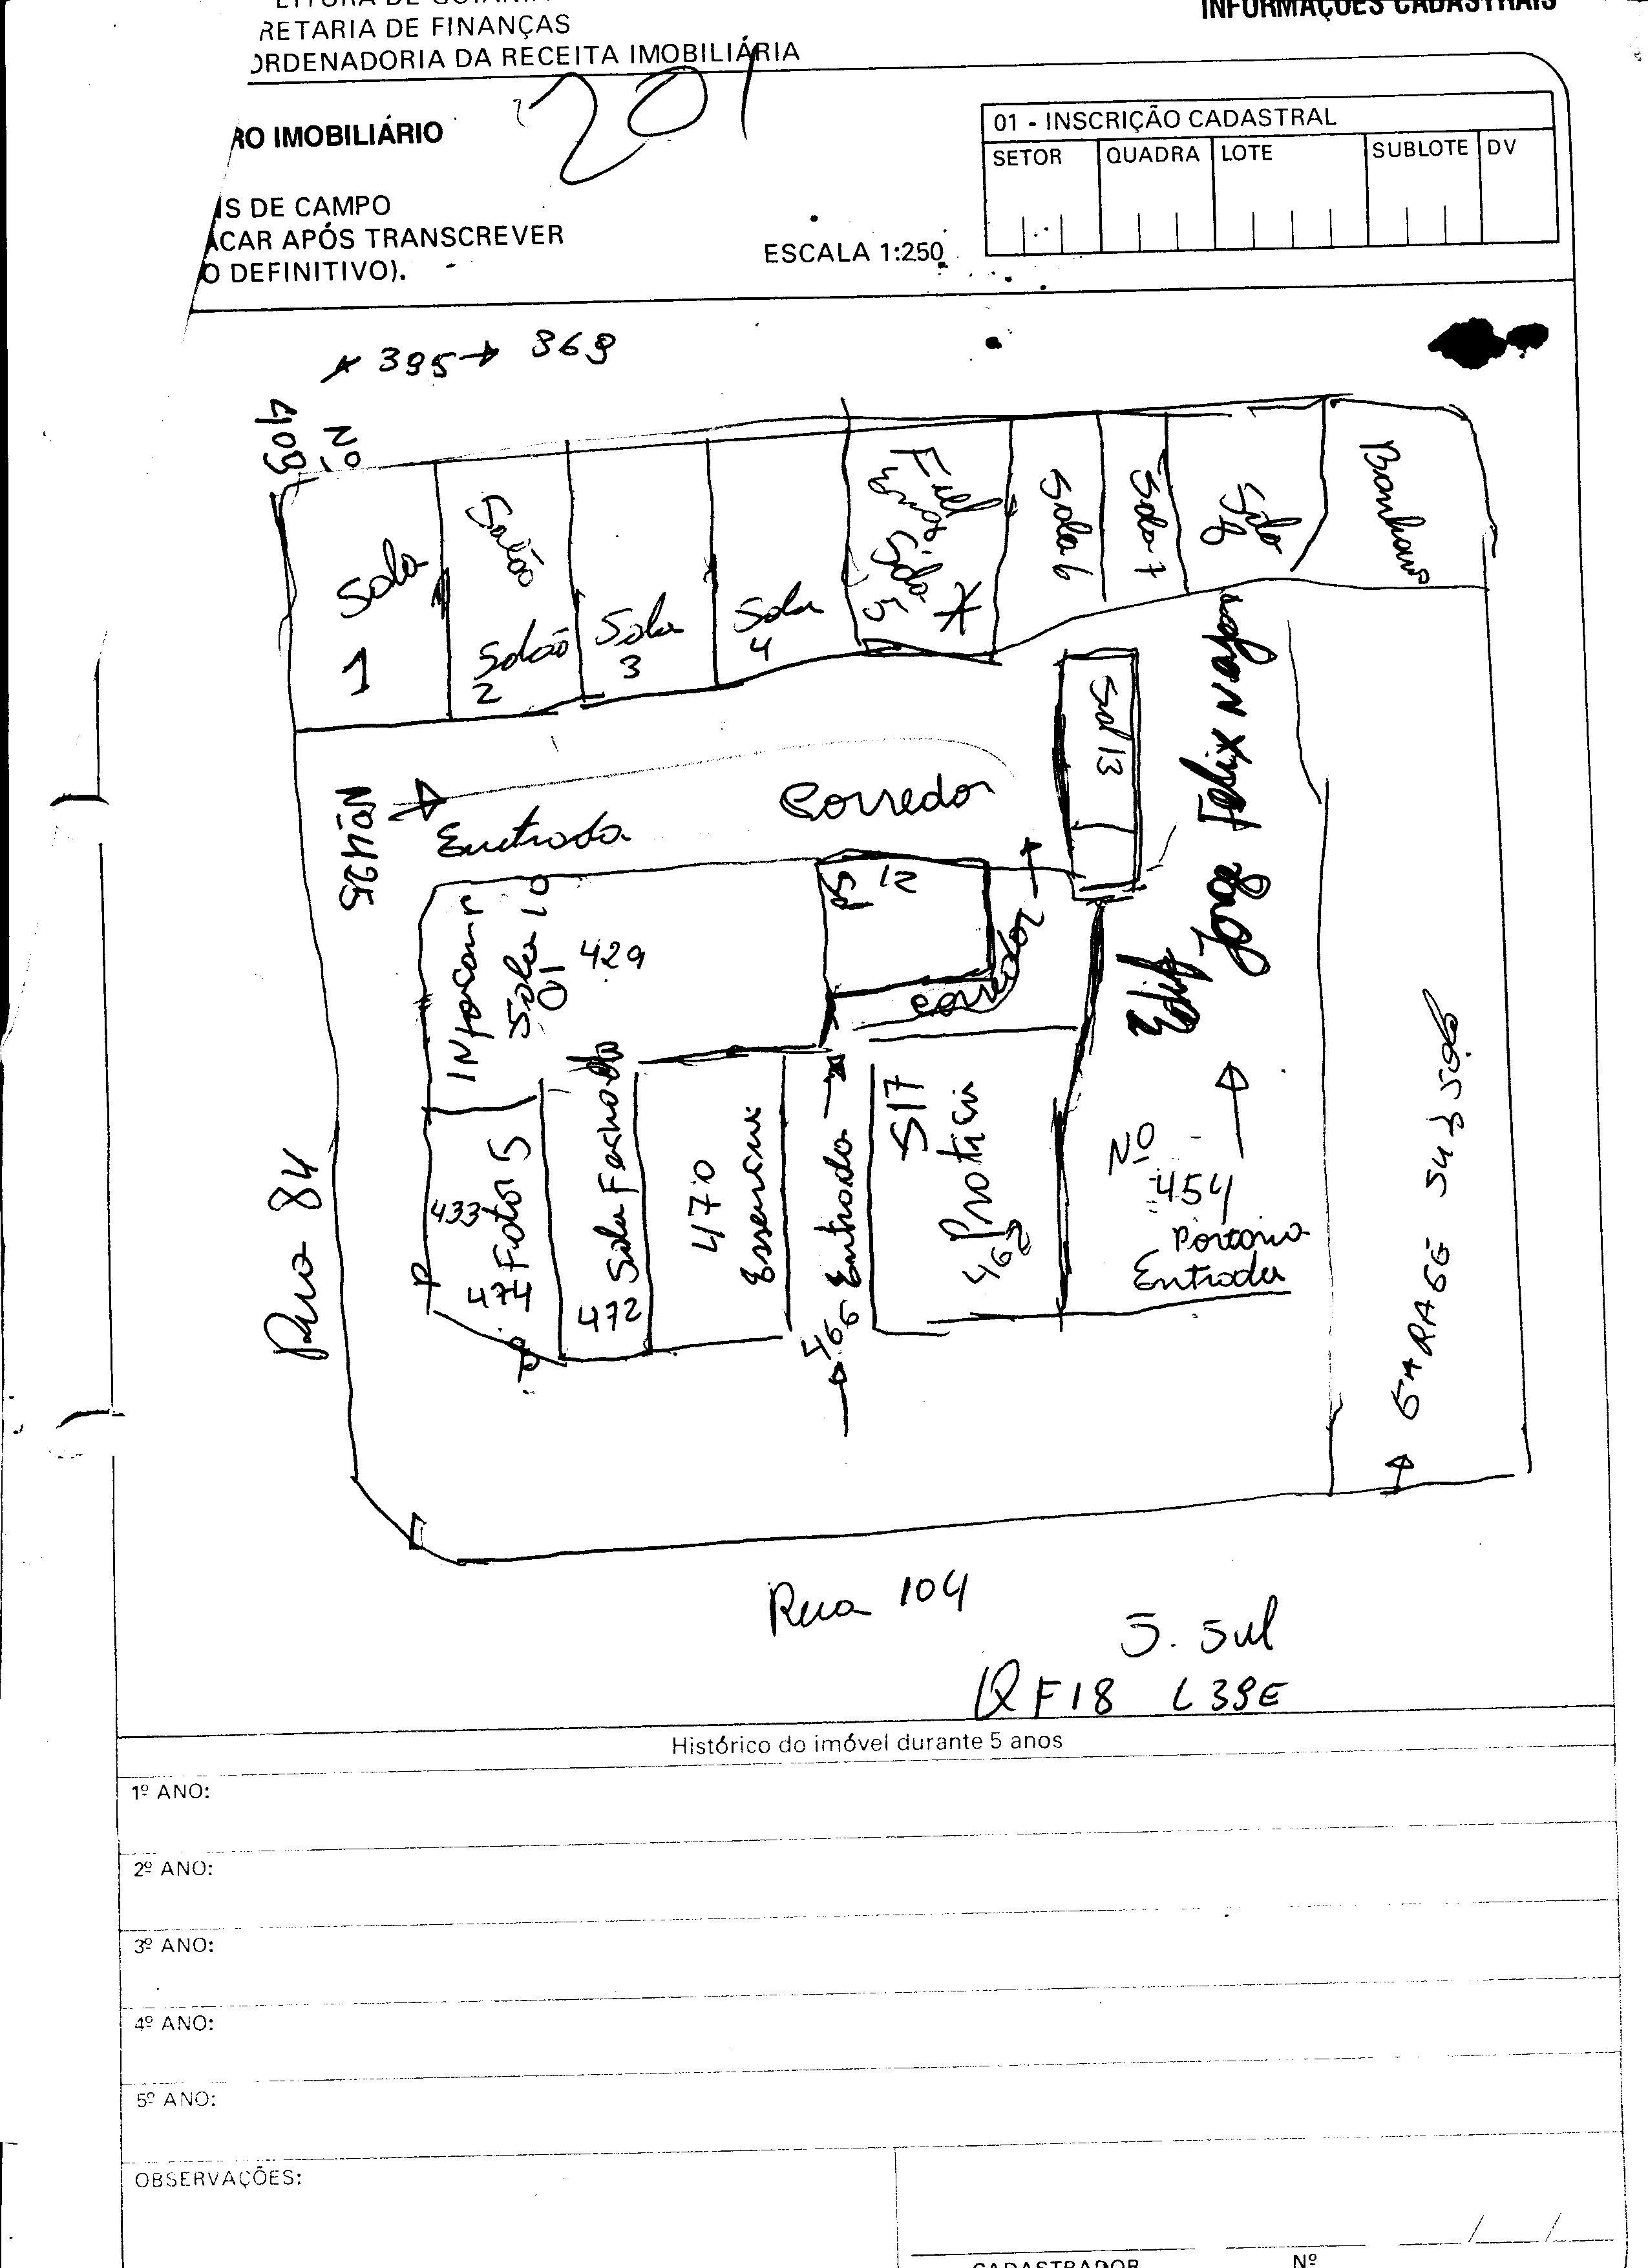 RETARIA DE FINANÇAS
ORDENADORIA DA RECEITA IMOBILIÁRIA
INFORMAÇÕES CADASTRAIS
201
RO IMOBILIÁRIO
IS DE CAMPO
ACAR APÓS TRANSCREVER
O DEFINITIVO).
ESCALA 1:250
01 - INSCRIÇÃO CADASTRAL
SETOR QUADRA LOTE SUBLOTE DV
395 → 369
Nº
409
Sala
1
Salão
Salão
2
Sala
3
Sala
4
Sala
5
Sala 6
Sala 7
Sala
8
Banheiro
Sal 13
Nº 425
Entrada
Corredor
Sl 12
Corredor
Sala 10
01
429
Edif
Jorge Felix
433
Foto 5
474
Sala Fechada
472
470
Essencia
Entrada
466
S17
462
Nº
454
Portaria
Entrada
GARAGE SUBSOLO
Rua 84
Rua 104
S. Sul
Q F18 L 39E
Histórico do imóvel durante 5 anos
1º ANO:
2º ANO:
3º ANO:
4º ANO:
5º ANO:
OBSERVAÇÕES:
/ /
CADASTRADOR Nº